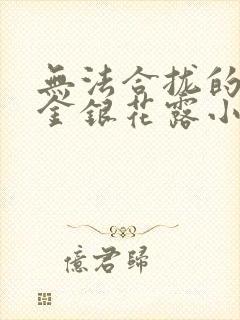 無法合拢的
金銀花露小
憶君歸